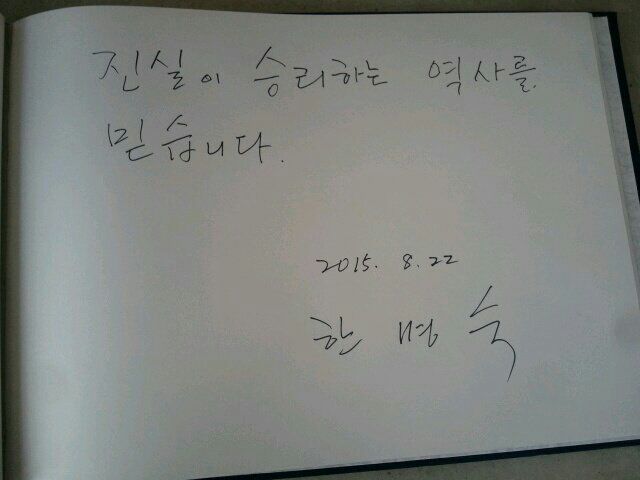 진실이 승리하는 역사를
믿습니다.
2015. 8. 22
한명숙